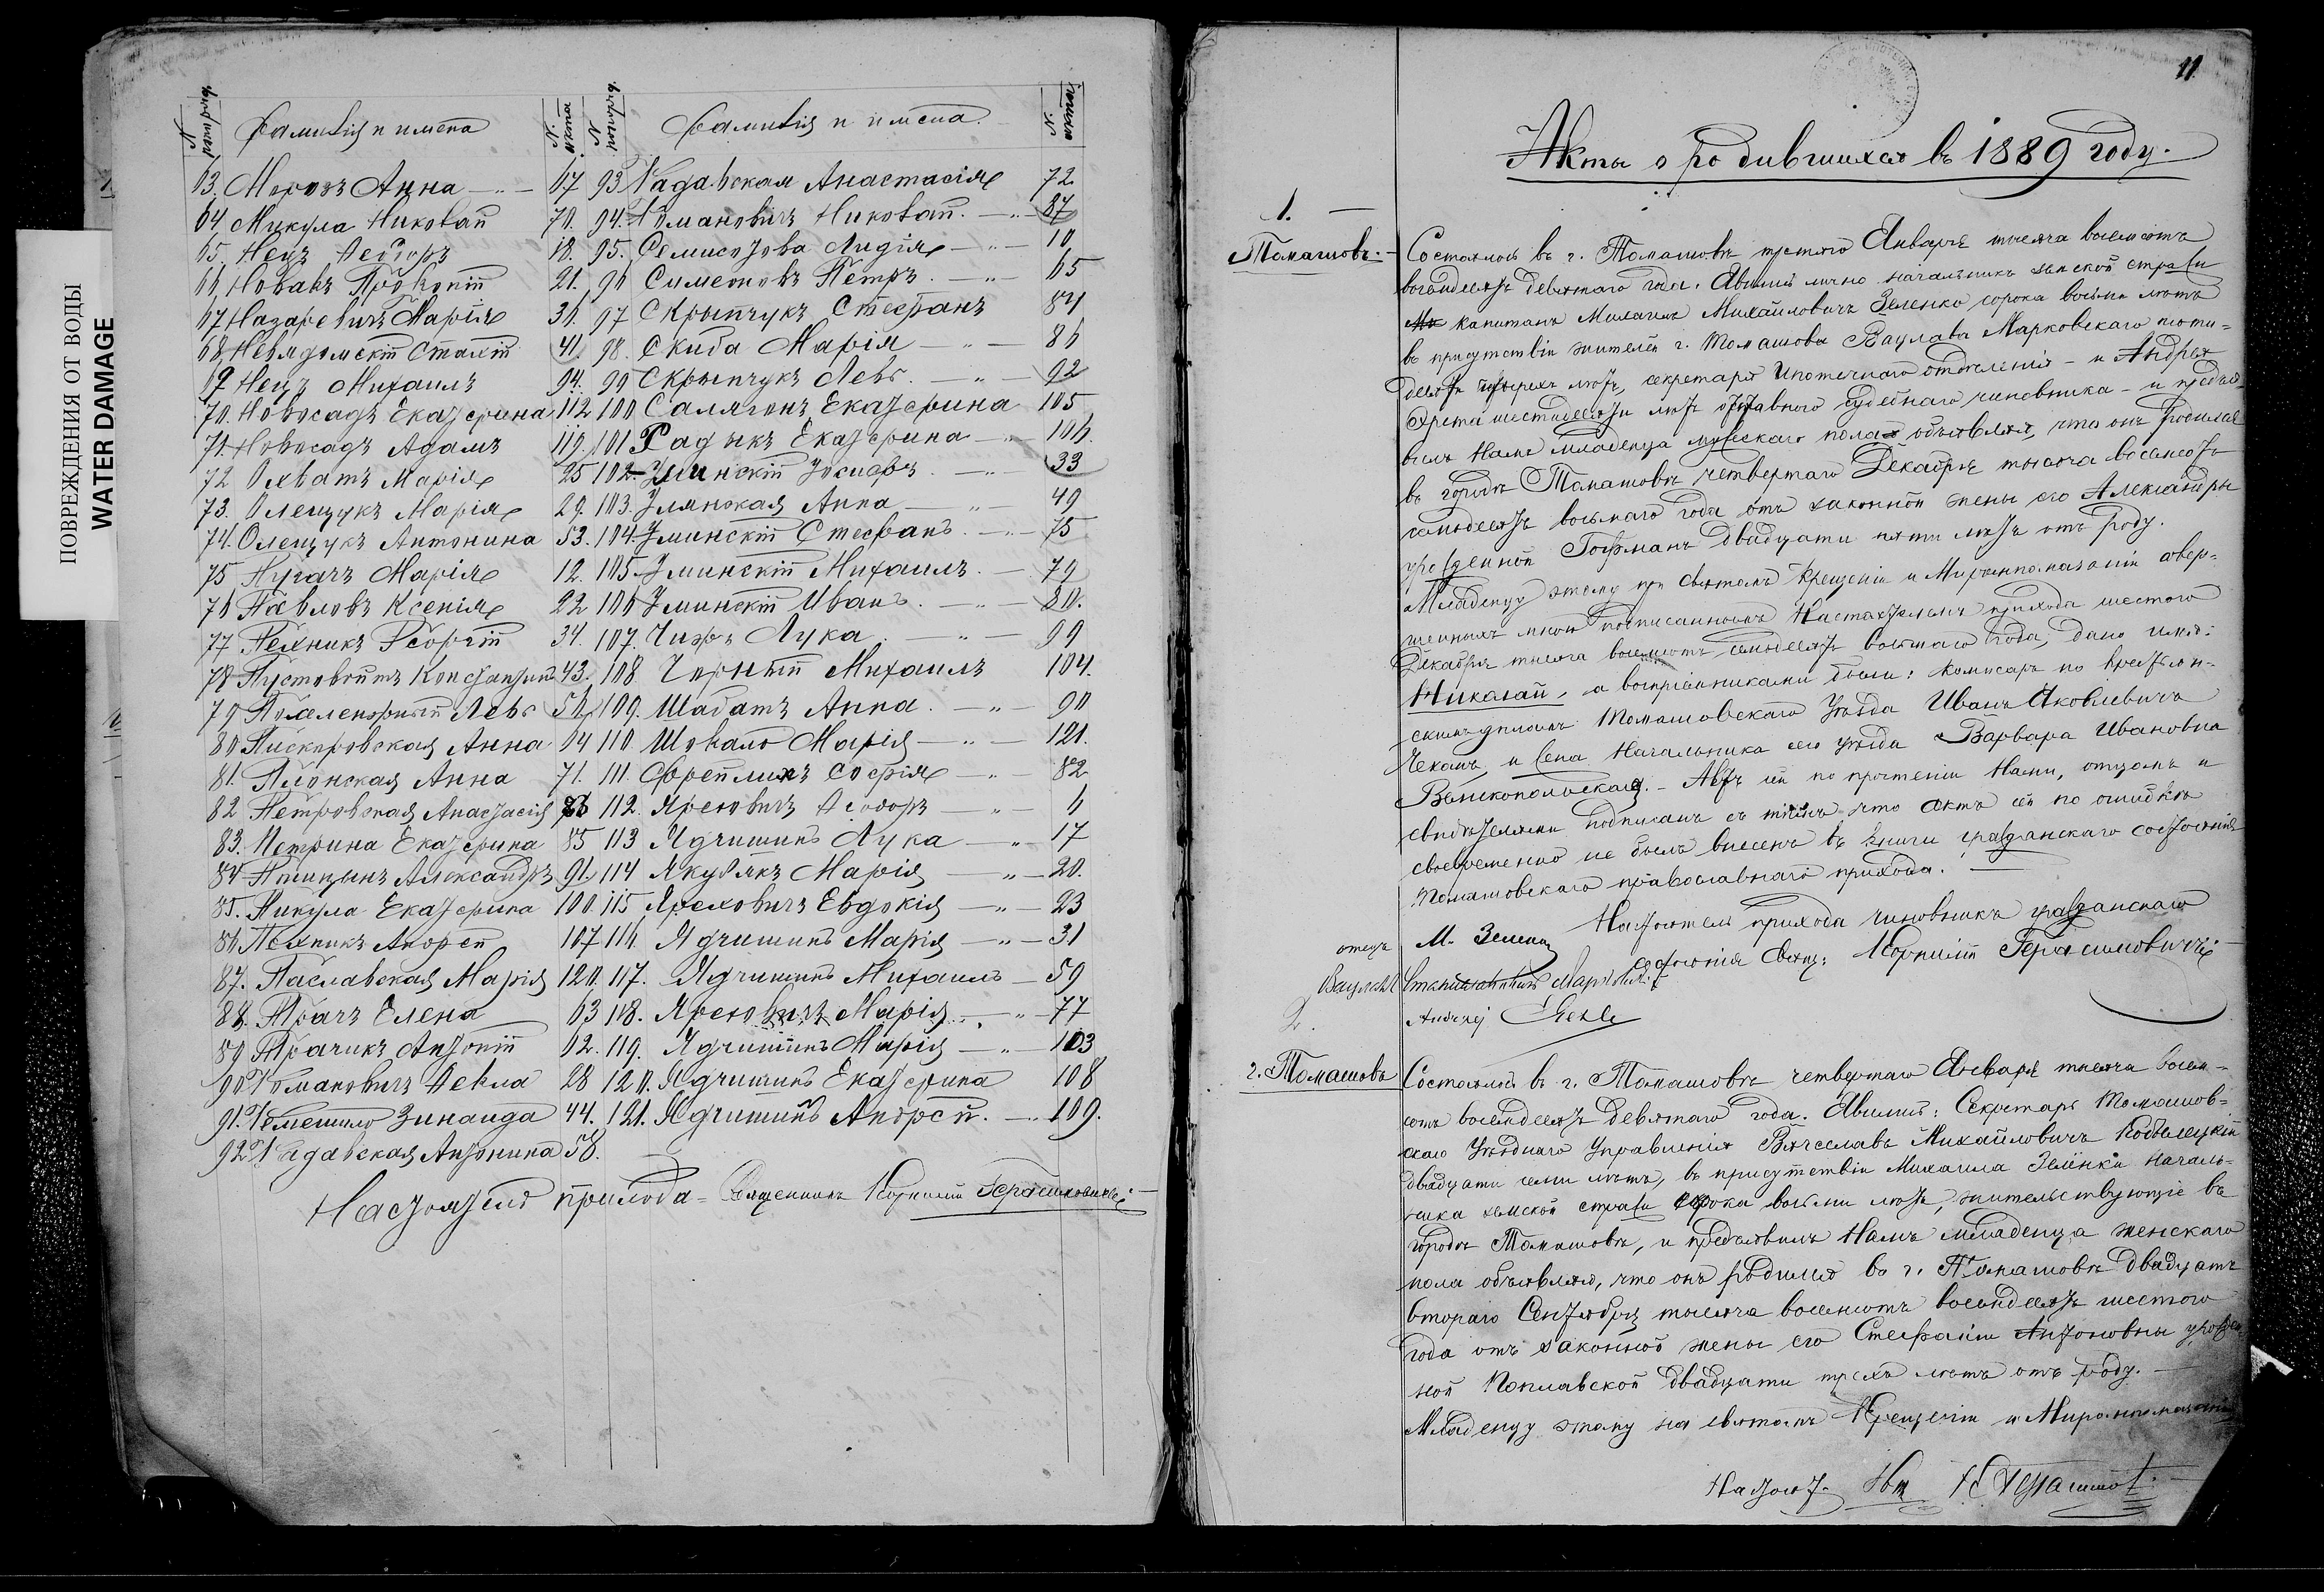 ПОВРЕЖДЕНИЯ ОТ ВОДЫ
WATER DAMAGE
N попоряд. Фамилія и имена N. акта
63. Морозъ Анна 67
64. Микула Николай 70.
65. Нецъ Ѳедоръ 18.
66. Новакъ Прокопій 21.
67. Назаревичъ Марія 36.
68. Невядомскій 41.
69. Нецъ Михаилъ 94.
70. Новосадъ Екатерина 112
71. Новосадъ Адамъ 119.
72. Охватъ Марія 25
73. Олещукъ Марія 29.
74. Олещукъ Антонина 53.
75. Пугачъ Марія 12.
76. Павловъ Ксенія 22
77. Пехникъ Георгій 34.
78. Пустовойтъ Константинъ 43.
79. Левъ
80. Пискоровская Анна 64
81. Плонская Анна 71.
82. Петровская Анастасія
83. Петрина Екатерина 85
84. Птицынъ Александръ 91.
85. Пикула Екатерина 100.
86. Пехникъ Андрей 107
87. Паславская Марія 120.
88. Трачъ Елена 63
89. Трачикъ Антоній 62.
90. Томановичъ Ѳекла 28
91. Зинаида 44.
92. Антонина 58.
N попоряд. Фамилія и имена. N. акта
93 Анастасія 72
94. Николай. 87
95. Семисотова Лидія 10
96 Симеоновъ Петръ 65
97 Скрыпчукъ Стефанъ 84
98. Скиба Марія 86
99 Скрыпчукъ Левъ. 92
100 Саляганъ Екатерина 105
101 Радыкъ Екатерина 106.
102. Уминскій Іосифъ 33
103. Улянская Анна 49
104. Уминскій Стефанъ. 75
105. Уминскій Михаилъ. 79
106 Уминскій Иванъ. 80.
107. Чижъ Лука. 99
108. Чорній Михаилъ 104.
109. Шабатъ Анна. 90
110. Шовало Марія 121.
111. Френлихъ Софія 82
112. Яреховичъ Ѳеодоръ 6
113 Ядчишинъ Лука 17
114 Якубякъ Марія 20.
115 Яреховичъ Евдокія 23
116. Ядчишинъ Марія 31
117. Ядчишинъ Михаилъ 59
118. Яреховичъ Марія 77
119. Ядчишинъ Марія 103
120. Ядчишинъ Екатерина 108
121. Ядчишинъ Андрей. 109.
Настоятель прихода Священникъ Корнилій Герасимовичъ
11
Акты о родившихся въ 1889 году.
1.
Томашовъ.
Состоялось въ г. Томашовѣ третяго Января тысяча восемьсотъ
восемдесятъ девятаго года. Явился лично начальникъ земской стражи
капитанъ Михаилъ Михайловичъ Зеленко сорока восьми лѣтъ
въ присутствіи жителей г. Томашова Вацлава Марковскаго пяти-
десяти четырехъ лѣтъ, секретаря Ипотечнаго отдѣленія - и Андрея
шестидесяти лѣтъ отставнаго судебнаго чиновника - и предъя-
вилъ Намъ младенца мужескаго пола объявляя, что онъ родился
въ городѣ Томашовѣ четвертаго Декабря тысяча восемьсотъ
семьдесятъ восьмаго года отъ законной жены его Александры
урожденной Гофманъ двадцати пяти лѣтъ отъ роду.
Младенцу этому при Святомъ Крещеніи и Миропомазаніи совер-
шенныхъ мною нижеподписаннымъ Настоятелемъ прихода шестого
Декабря тысяча восемьсотъ семьдесятъ восьмаго года, дано имя:
Николай, а воспріемниками были: Комисаръ по крестьян-
скимъ дѣламъ Томашовскаго Уѣзда Иванъ Яковлевичъ
Чекашъ, и жена Начальника сего уѣзда Варвара Ивановна
Великопольская. - Актъ сей по прочтеніи Нами, отцомъ и
свидѣтелями подписанъ съ тѣмъ что актъ сей по ошибкѣ
своевременно не былъ внесенъ въ книги гражданскаго состоянія
Томашовскаго православнаго прихода.
Настоятель прихода чиновникъ гражданскаго
отецъ М. Зеленко
состоянія Свящ: Корнилій Герасимовичъ
Вацлавъ
Andrzej
2.
2. Томашовъ
Состоялось въ г. Томашовѣ четвертаго Января тысяча восемь-
сотъ восемдесятъ девятаго года. Явился: Секретарь Томашов-
скаго Уѣзднаго Управленія Вячеславъ Михайловичъ Кобылецкій
двадцати семи лѣтъ, въ присутствіи Михаила Зеленки началь-
ника земской стражи сорока восьми лѣтъ, жительствующіе въ
городѣ Томашовѣ, и предъявилъ Намъ младенца женскаго
пола объявляя, что онъ родился въ г. Томашовѣ двадцать
втораго Сентября тысяча восемьсотъ восемдесятъ шестого
года отъ законной жены его Стефаніи Антоновны урожден
ной Поплавской двадцати трехъ лѣтъ отъ роду.
Младенцу этому на святомъ Крещеніи и Миропомазаніи
Настоят.